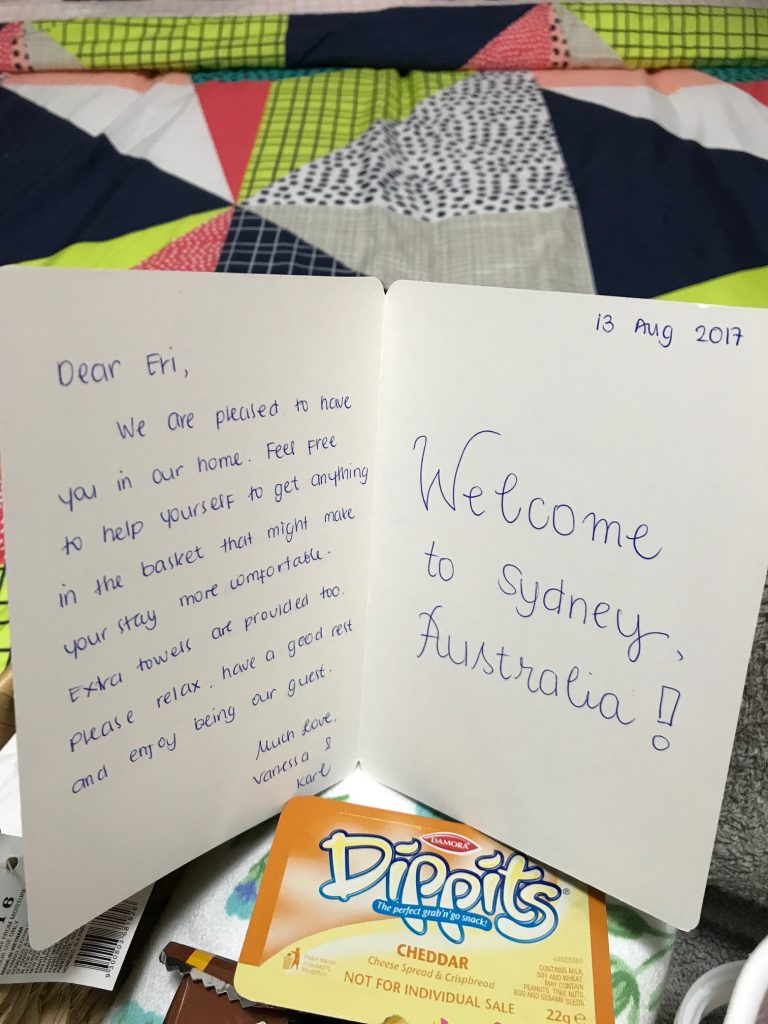 Dear Eri,
We are pleased to have
you in our home. Feel Free
to help yourself to get anything
in the basket that might make
your stay more comfortable.
Extra towels are provided too.
please relax, have a good rest
and enjoy being our guest.
Much Love,
Vanessa &
Karl
13 Aug 2017
Welcome
to Sydney,
Australia!
DAMORA
Dippits®
The perfect grab'n'go snack!
CHEDDAR
Cheese Spread & Crispbread
NOT FOR INDIVIDUAL SALE
CONTAINS MILK,
SOY AND WHEAT
MAY CONTAIN
PEANUTS, TREE NUTS,
EGG AND SESAME SEEDS.
22g e